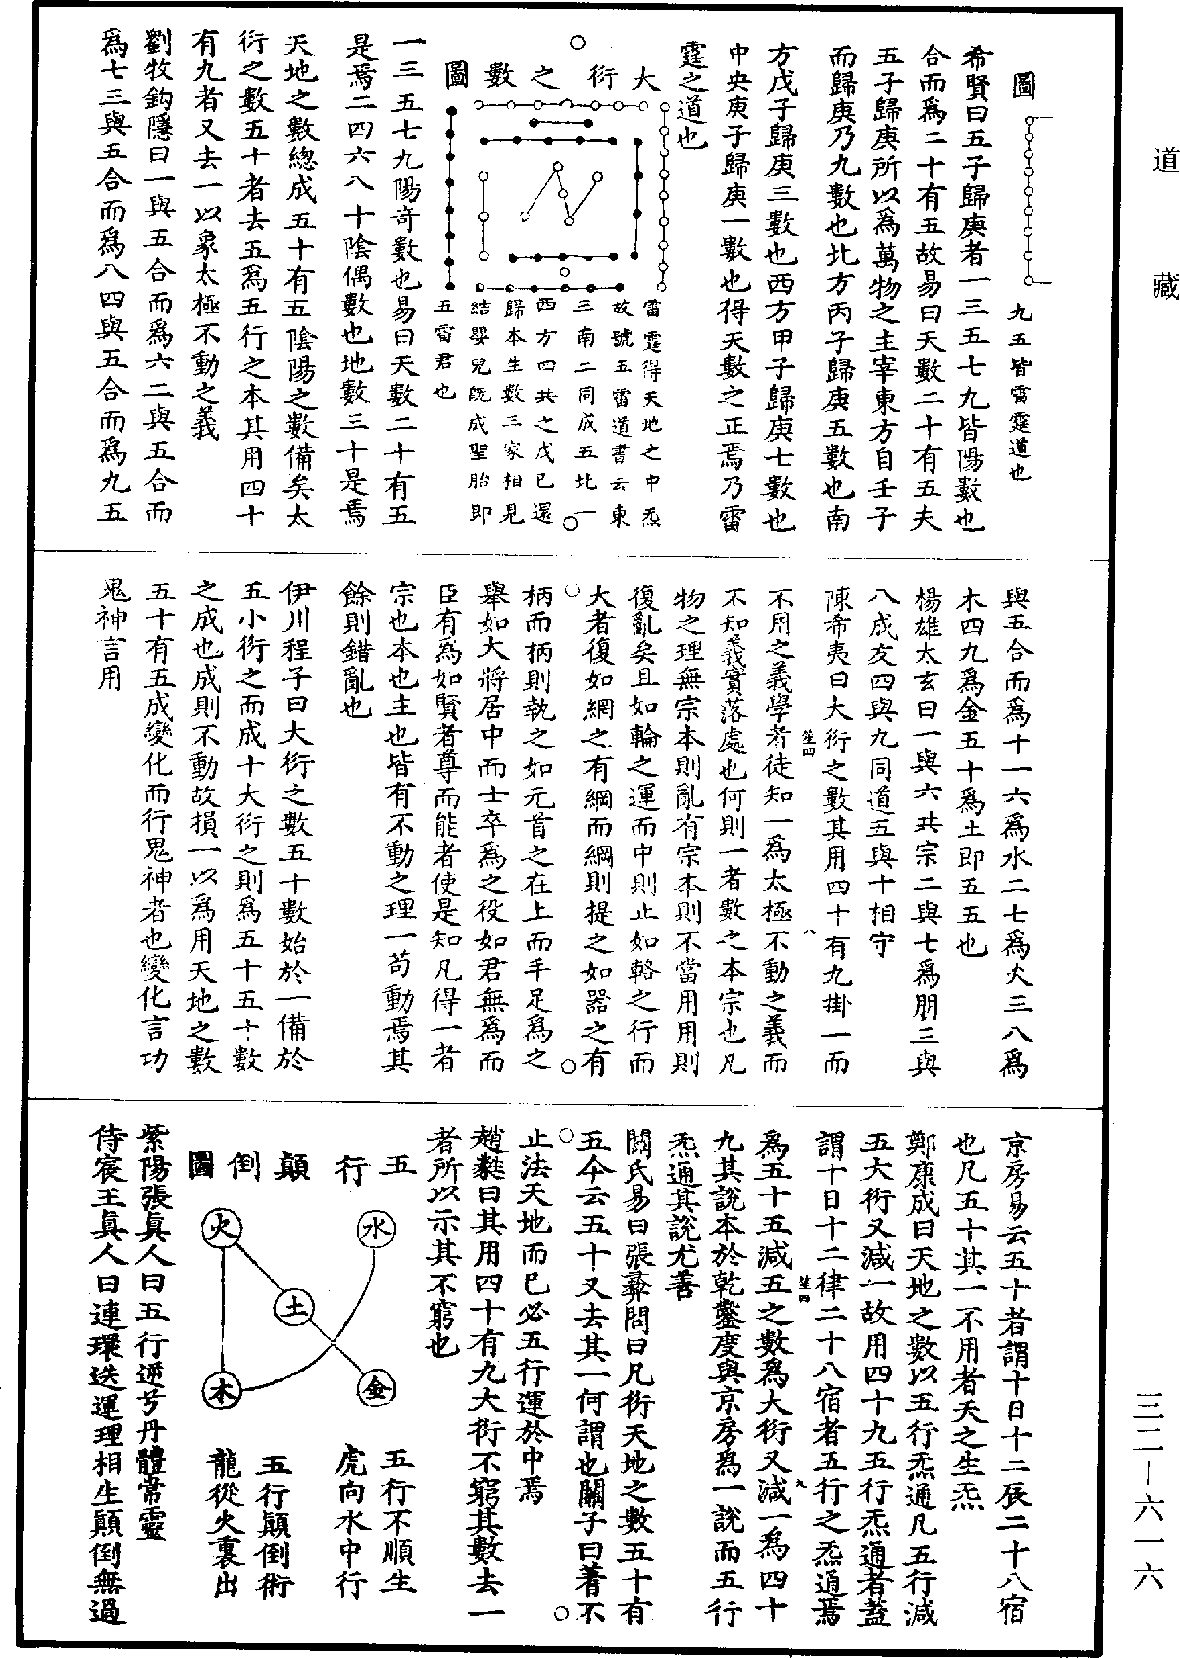 道藏
圖
九五皆雷霆道也
希賢曰五子歸庚者一三五七九皆陽數也
合而爲二十有五故易曰天數二十有五夫
五子歸庚所以爲萬物之主宰東方自壬子
而歸庚乃九數也北方丙子歸庚五數也南
方戊子歸庚三數也西方甲子歸庚七數也
中央庚子歸庚一數也得天數之正焉乃雷
霆之道也
大衍之數圖
雷霆得天地之中炁
故號五雷道書云東
三南二同成五北一
西方四共之戊己還
歸本生數三家相見
結嬰兒旣成聖胎即
五雷君也
一三五七九陽奇數也易曰天數二十有五
是焉二四六八十陰偶數也地數三十是焉
天地之數總成五十有五陰陽之數備矣太
衍之數五十者去五爲五行之本其用四十
有九者又去一以象太極不動之義
劉牧鈎隱曰一與五合而爲六二與五合而
爲七三與五合而爲八四與五合而爲九五
與五合而爲十一六爲水二七爲火三八爲
木四九爲金五十爲土即五五也
楊雄太玄曰一與六共宗二與七爲朋三與
八成友四與九同道五與十相守
陳希夷曰大衍之數其用四十有九掛一而
不用之義學者徒知一爲太極不動之義而
不知義實落處也何則一者數之本宗也凡
物之理無宗本則亂有宗本則不當用用則
復亂矣且如輪之運而中則止如輅之行而
大者復如網之有綱而綱則提之如器之有
柄而柄則執之如元首之在上而手足爲之
舉如大將居中而士卒爲之役如君無爲而
臣有爲如賢者尊而能者使是知凡得一者
宗也本也主也皆有不動之理一苟動焉其
餘則錯亂也
伊川程子曰大衍之數五十數始於一備於
五小衍之而成十大衍之則爲五十五十數
之成也成則不動故損一以爲用天地之數
五十有五成變化而行鬼神者也變化言功
鬼神言用
京房易云五十者謂十日十二辰二十八宿
也凡五十其一不用者天之生炁
鄭康成曰天地之數以五行炁通凡五行減
五大衍又減一故用四十九五行炁通者蓋
謂十日十二律二十八宿者五行之炁通焉
爲五十五減五之數爲大衍又減一爲四十
九其說本於乾鑿度與京房爲一說而五行
炁通其說尤善
關氏易曰張彝問曰凡衍天地之數五十有
五今云五十又去其一何謂也關子曰蓍不
止法天地而已必五行運於中焉
趙蕤曰其用四十有九大衍不窮其數去一
者所以示其不窮也
五行顛倒圖
水
火
土
木
金
五行不順生
虎向水中行
五行顛倒術
龍從火裏出
紫陽張眞人曰五行遞兮丹體常靈
侍宸王眞人曰連環迭運理相生顛倒無過
三二—六一六